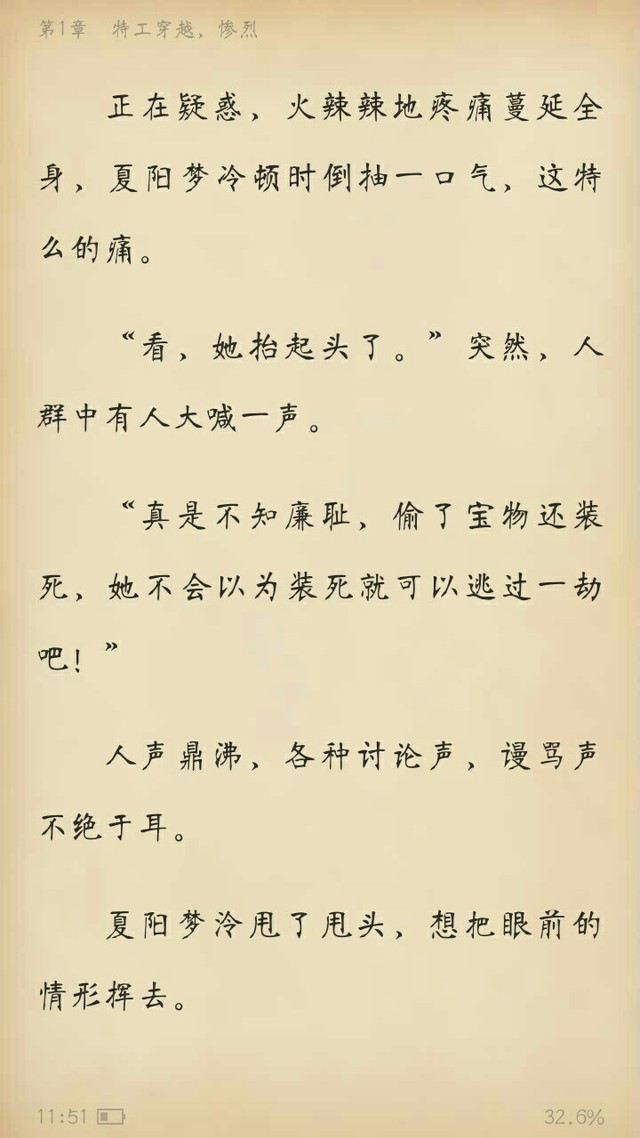 第1章 特工穿越，惨烈
正在疑惑，火辣辣地疼痛蔓延全
身，夏阳梦冷顿时倒抽一口气，这特
么的痛。
“看，她抬起头了。”突然，人
群中有人大喊一声。
“真是不知廉耻，偷了宝物还装
死，她不会以为装死就可以逃过一劫
吧！”
人声鼎沸，各种讨论声，谩骂声
不绝于耳。
夏阳梦泠甩了甩头，想把眼前的
情形挥去。
11:51
32.6%